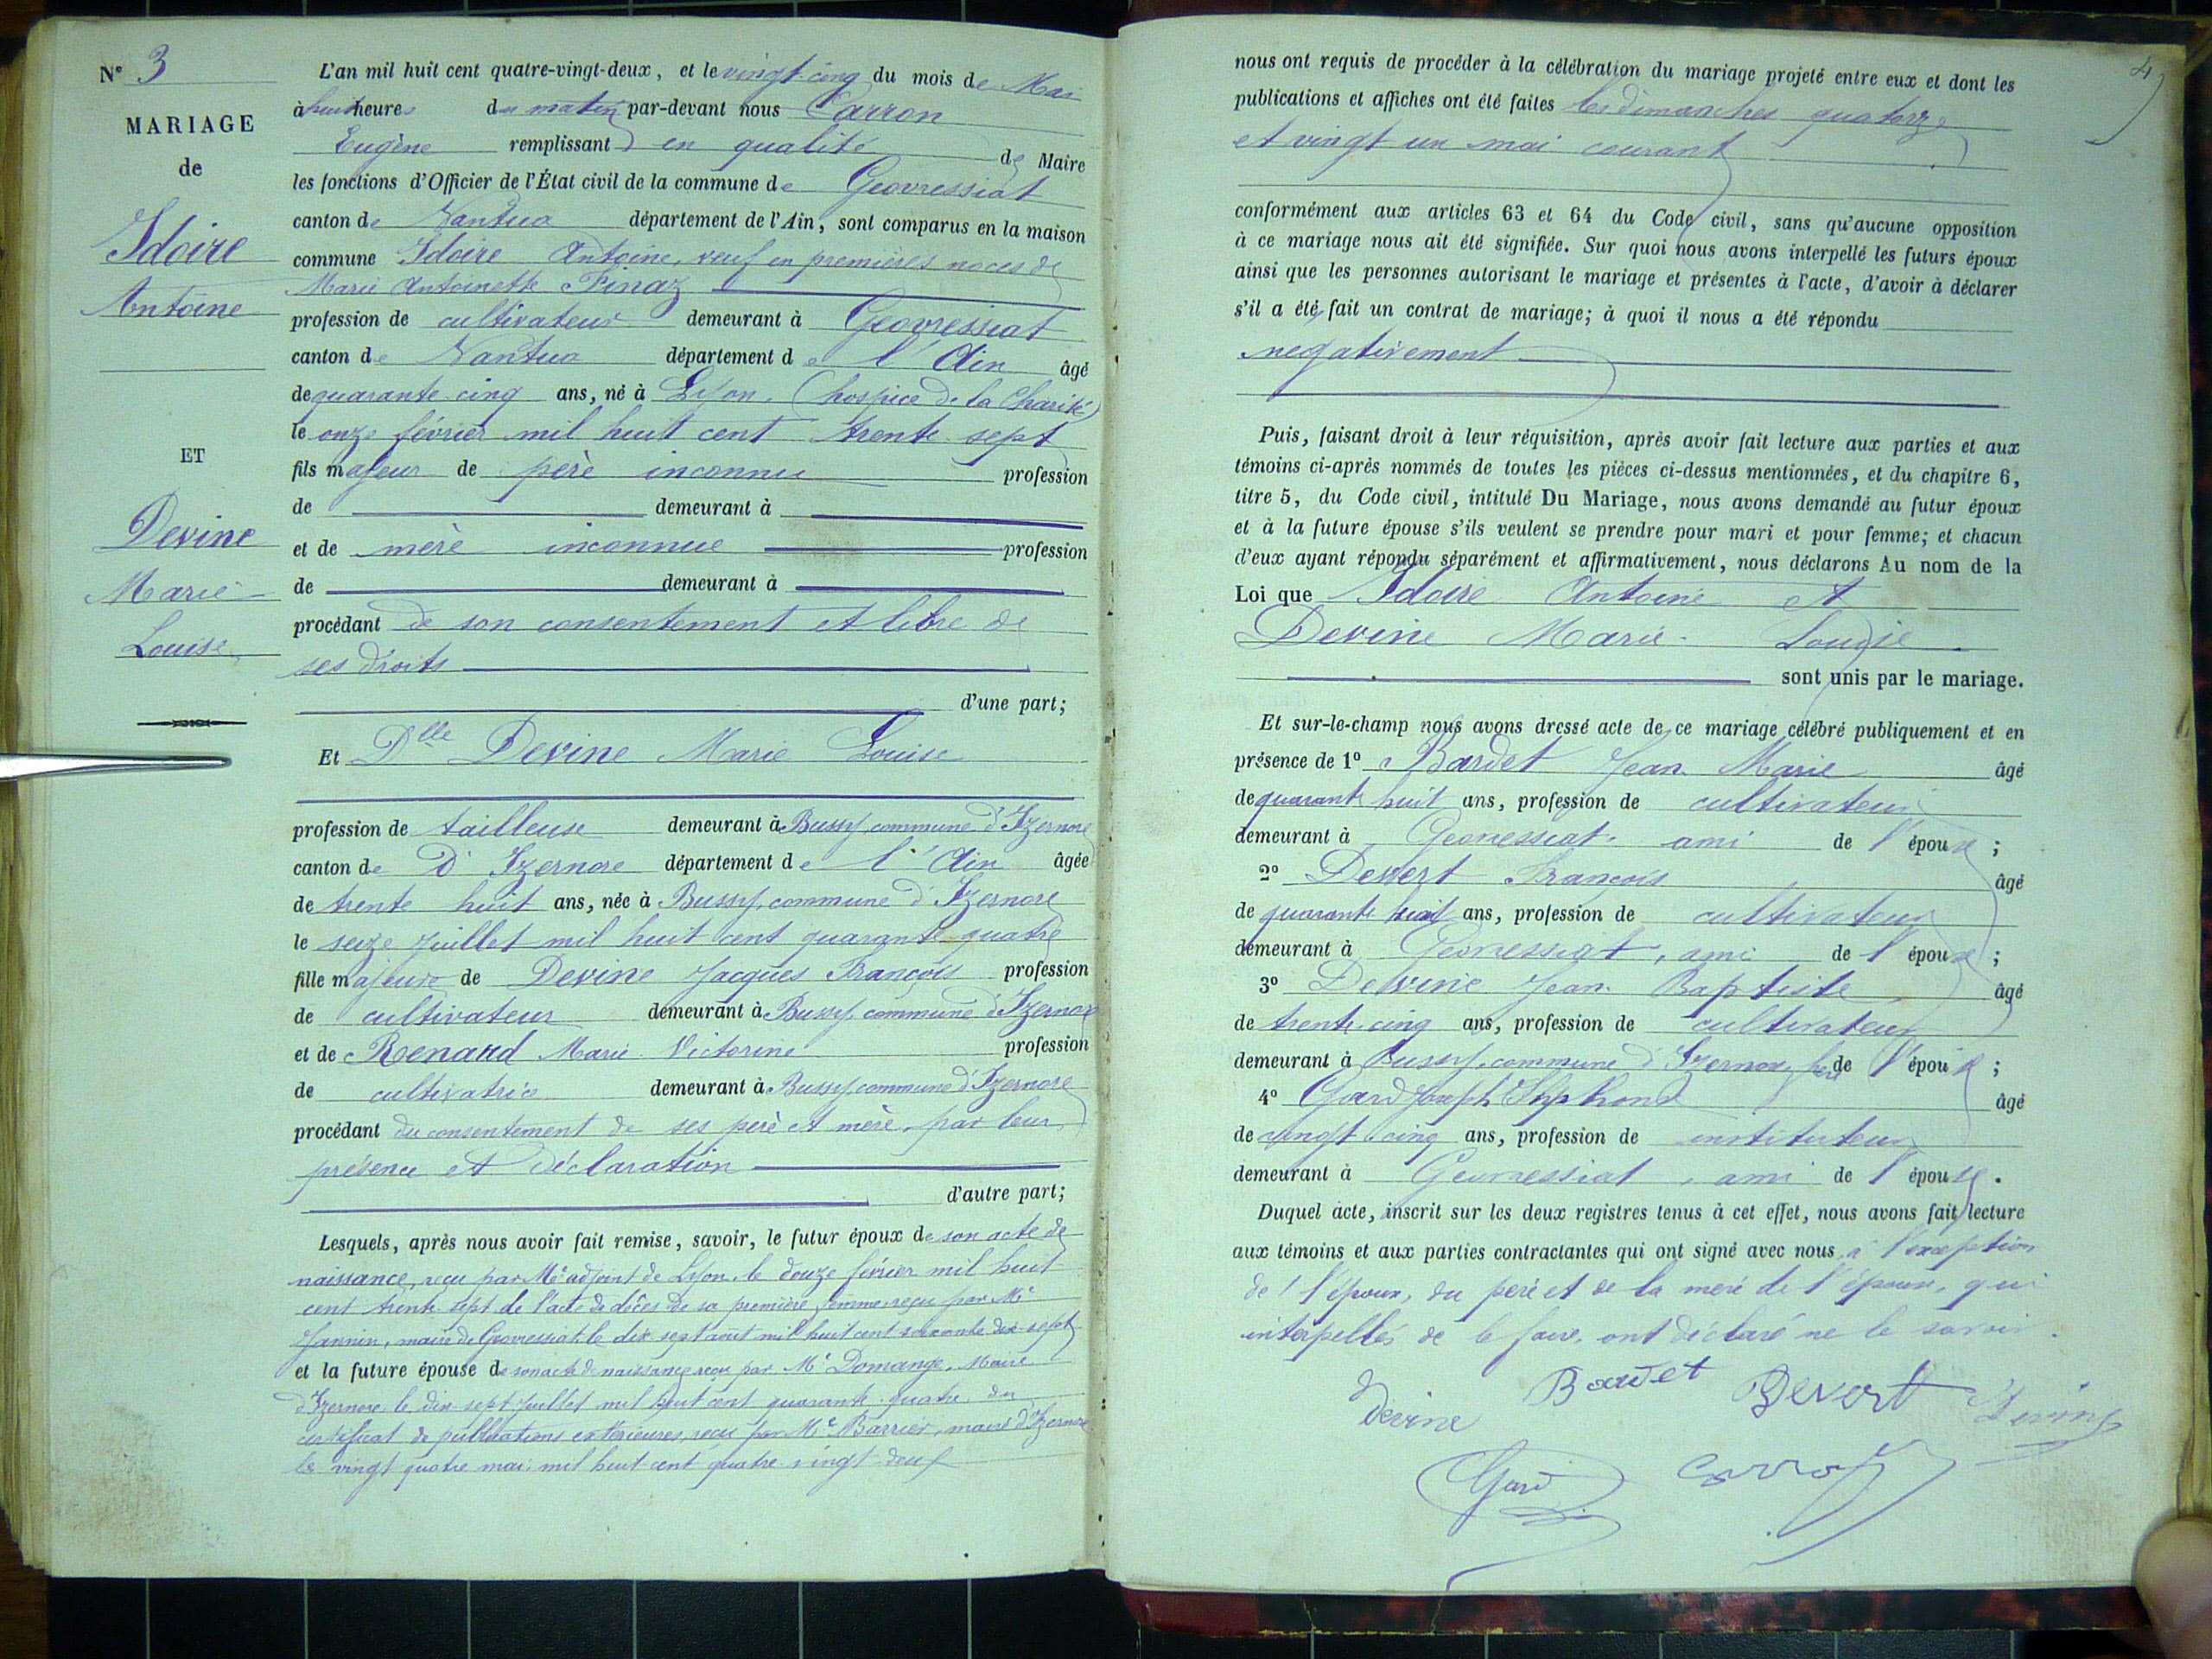 N° 3
MARIAGE
de
Idoire
Antoine
ET
Devine
Marie
Louise
L'an mil huit cent quatre-vingt-deux, et le vingt-cinq du mois de Mai
à huit heures du matin par-devant nous Carron
Eugène remplissant en qualité de Maire
les fonctions d'Officier de l'État civil de la commune de Geovressiat
canton de Nantua département de l'Ain, sont comparus en la maison
commune Idoire Antoine, veuf en premières noces de
Marie Antoinette Pinaz
profession de cultivateur demeurant à Geovressiat
canton de Nantua département de l'Ain âgé
de quarante-cinq ans, né à Lyon, (hospice de la Charité)
le onze février mil huit cent trente sept
fils majeur de père inconnu profession
de demeurant à
et de mère inconnue profession
de demeurant à
procédant de son consentement et libre de
ses droits
d'une part;
Et Dlle Devine Marie Louise
profession de tailleuse demeurant à Bussy, commune d'Izernore
canton de D'Izernore département de l'Ain âgée
de trente huit ans, née à Bussy, commune d'Izernore
le seize juillet mil huit cent quarante-quatre
fille majeure de Devine Jacques François profession
de cultivateur demeurant à Bussy, commune d'Izernore
et de Renard Marie Victorine profession
de cultivatrice demeurant à Bussy, commune d'Izernore
procédant du consentement de ses père et mère, par leur
présence et déclaration
d'autre part;
Lesquels, après nous avoir fait remise, savoir, le futur époux de son acte de
naissance, reçu par Me adjoint de Lyon, le douze février mil huit
cent trente sept, de l'acte de décès de sa première femme, reçu par Me
Jannin, maire de Geovressiat, le dix sept août mil huit cent soixante dix-sept
et la future épouse de son acte de naissance reçu par Me Domange, Maire
d'Izernore le dix-sept juillet mil huit cent quarante-quatre, du
certificat de publications extérieures, reçu par Me Barrier, maire d'Izernore
le vingt quatre mai mil huit cent quatre-vingt-deux
4
nous ont requis de procéder à la célébration du mariage projeté entre eux et dont les
publications et affiches ont été faites les dimanches quatorze
et vingt un mai courant
conformément aux articles 63 et 64 du Code civil, sans qu'aucune opposition
à ce mariage nous ait été signifiée. Sur quoi nous avons interpellé les futurs époux
ainsi que les personnes autorisant le mariage et présentes à l'acte, d'avoir à déclarer
s'il a été fait un contrat de mariage; à quoi il nous a été répondu
négativement
Puis, faisant droit à leur réquisition, après avoir fait lecture aux parties et aux
témoins ci-après nommés de toutes les pièces ci-dessus mentionnées, et du chapitre 6,
titre 5, du Code civil, intitulé Du Mariage, nous avons demandé au futur époux
et à la future épouse s'ils veulent se prendre pour mari et pour femme; et chacun
d'eux ayant répondu séparément et affirmativement, nous déclarons Au nom de la
Loi que Idoire Antoine et
Devine Marie-Louise
sont unis par le mariage.
Et sur-le-champ nous avons dressé acte de ce mariage célébré publiquement et en
présence de 1° Bardet Jean Marie âgé
de quarante huit ans, profession de cultivateur
demeurant à Geovressiat, ami de l'épouse;
2° Devert François âgé
de quarante huit ans, profession de cultivateur
demeurant à Geovressiat, ami de l'épouse;
3° Devine Jean-Baptiste âgé
de trente-cinq ans, profession de cultivateur
demeurant à Bussy, commune d'Izernore, frère de l'épouse;
4° Gard Joseph Alphonse âgé
de vingt-cinq ans, profession de instituteur
demeurant à Geovressiat, ami de l'épouse.
Duquel acte, inscrit sur les deux registres tenus à cet effet, nous avons fait lecture
aux témoins et aux parties contractantes qui ont signé avec nous à l'exception
de l'époux, du père et de la mère de l'épouse, qui
interpellés de le faire, ont déclaré ne le savoir.
Devine Bardet Devert Devine
Gard Carron